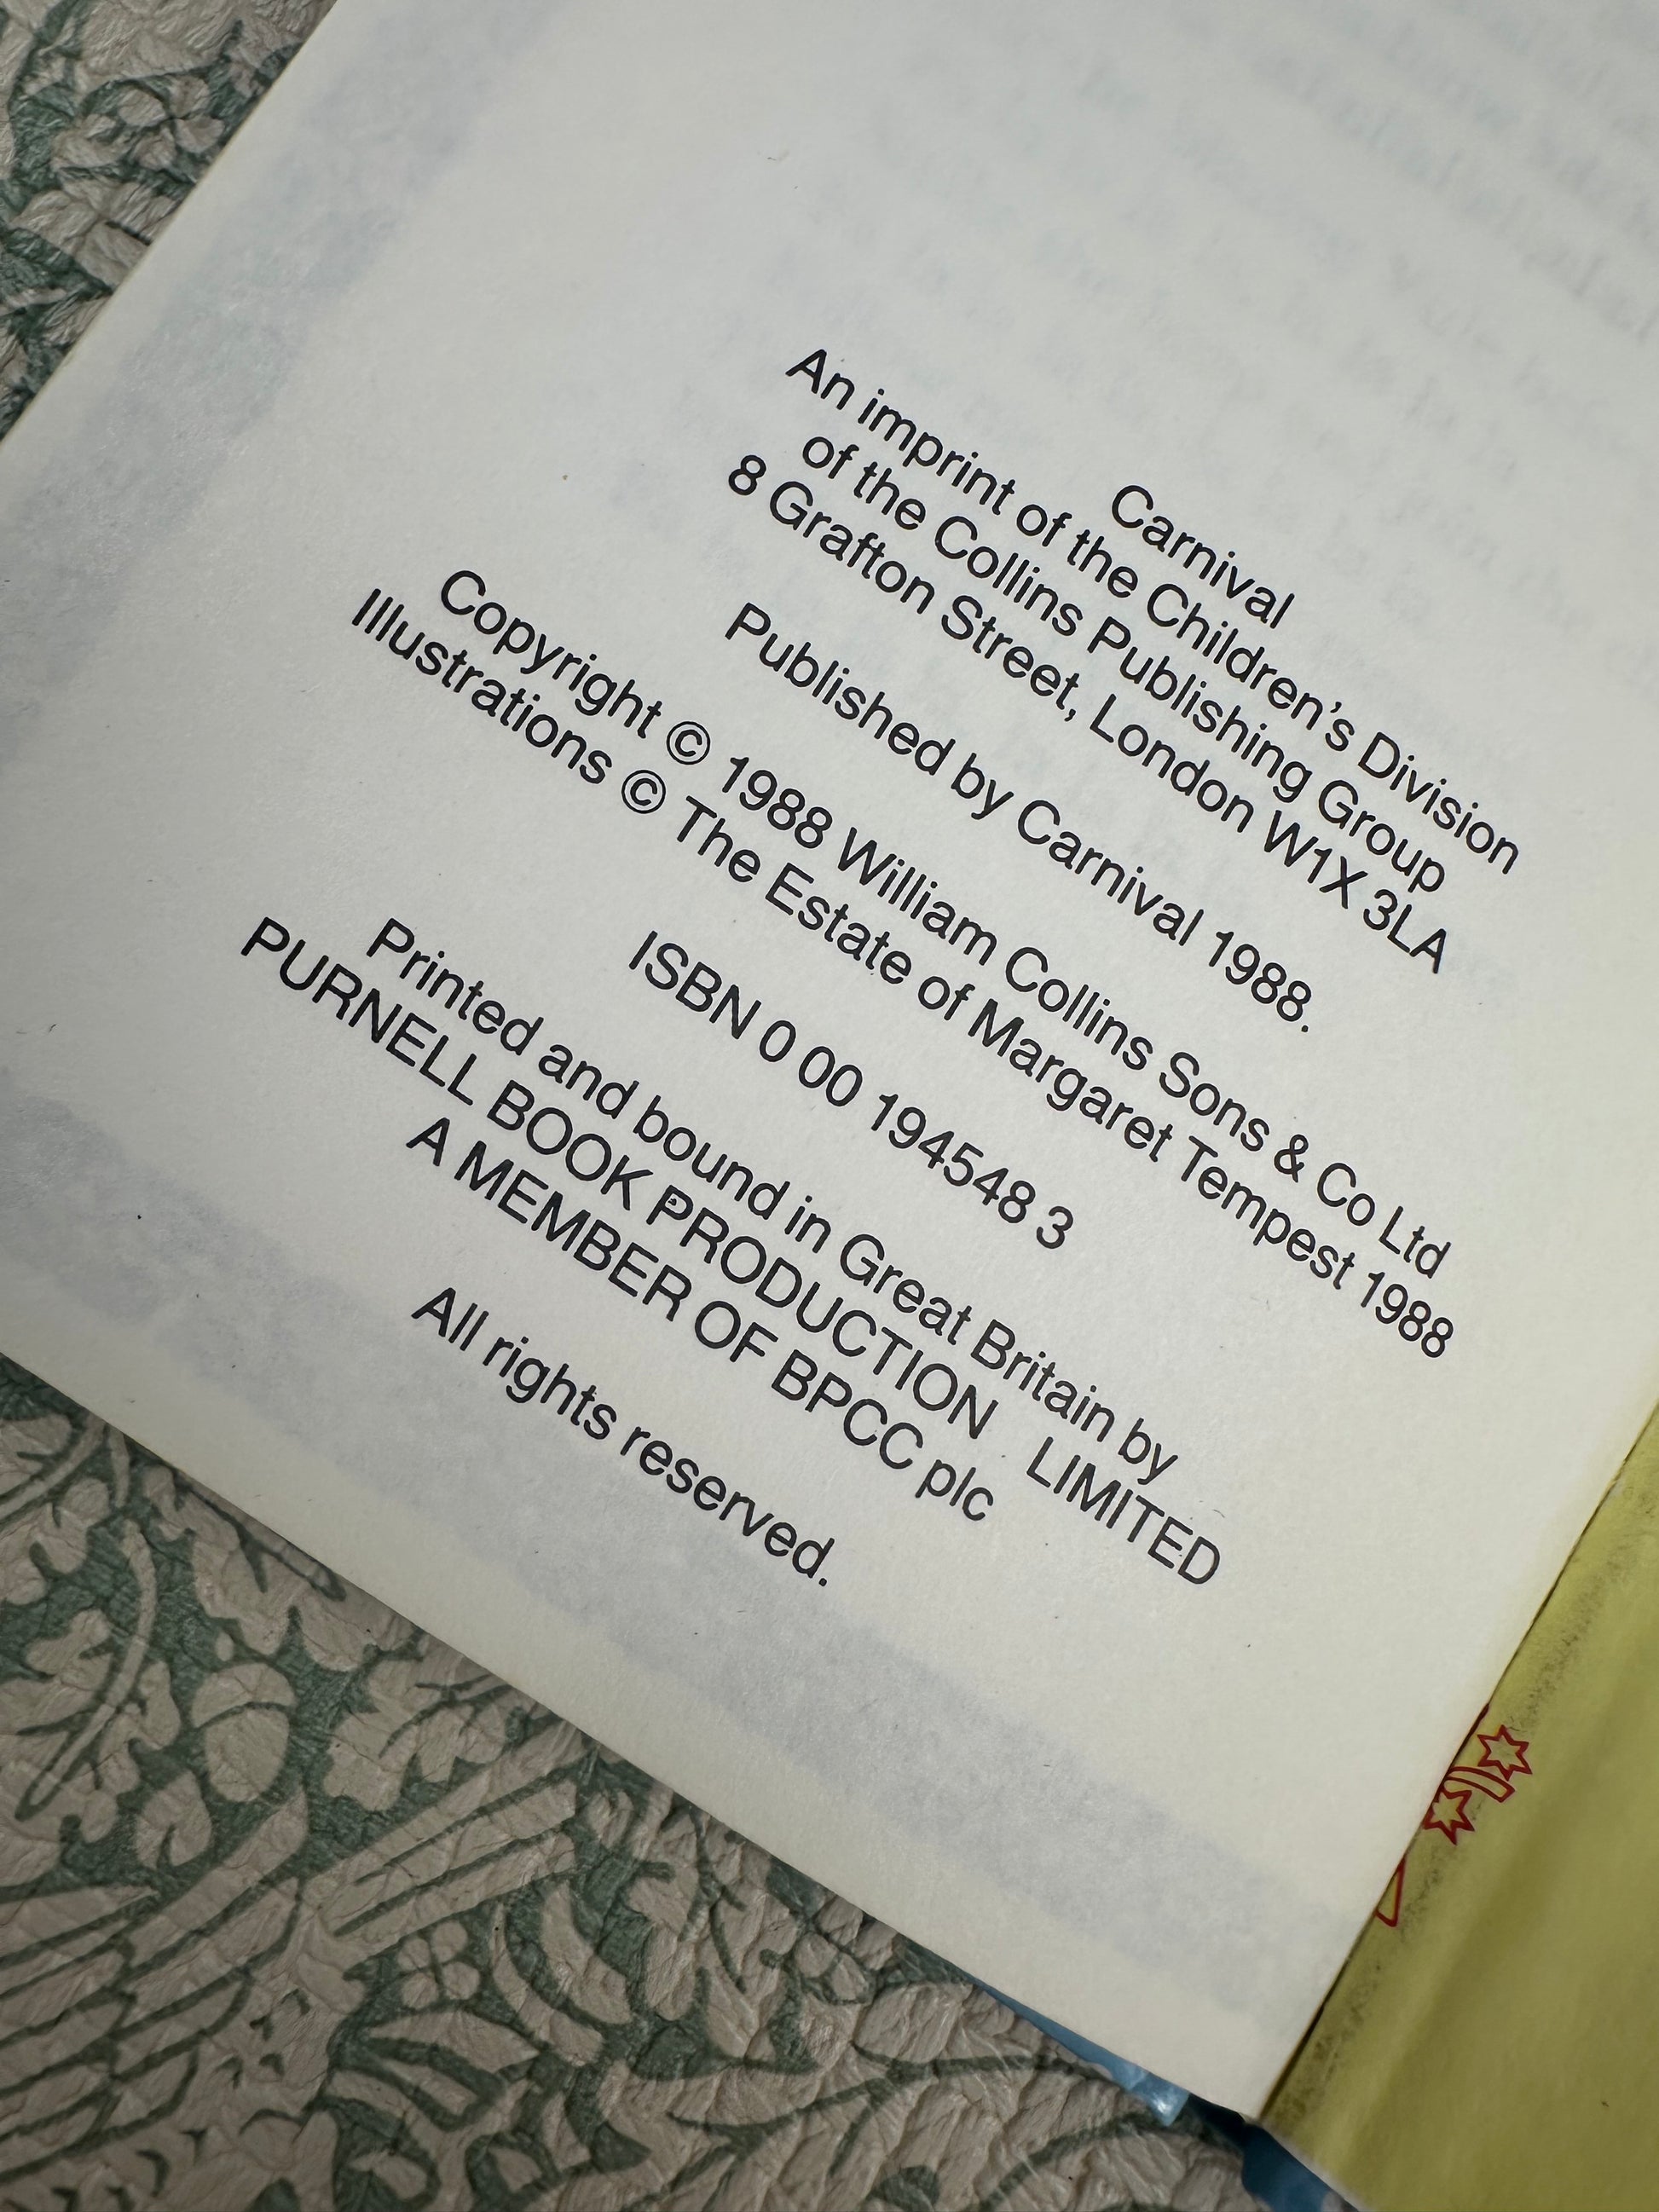 Carnival
An imprint of the Children's Division
of the Collins Publishing Group
8 Grafton Street, London W1X 3LA
Published by Carnival 1988.
Copyright © 1988 William Collins Sons & Co Ltd
Illustrations © The Estate of Margaret Tempest 1988
ISBN 0 00 194548 3
Printed and bound in Great Britain by
PURNELL BOOK PRODUCTION LIMITED
A MEMBER OF BPCC plc
All rights reserved.